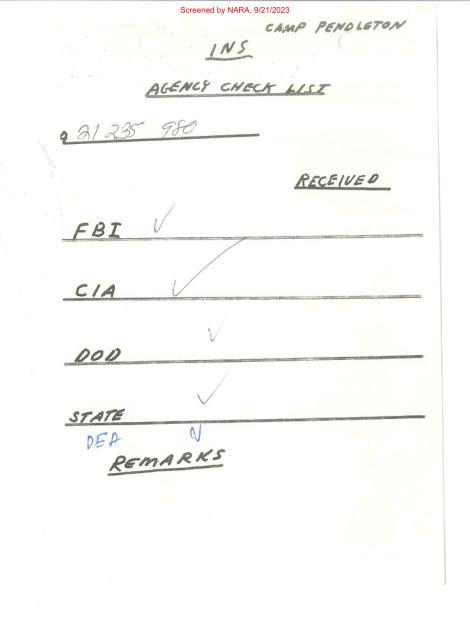 Screened by NARA, 9/21/2023
CAMP PENDLETON
INS
AGENCY CHECK LIST
A 21 235 980
RECEIVED
FBI ✓
CIA ✓
DOD ✓
STATE ✓
DEA ✓
REMARKS